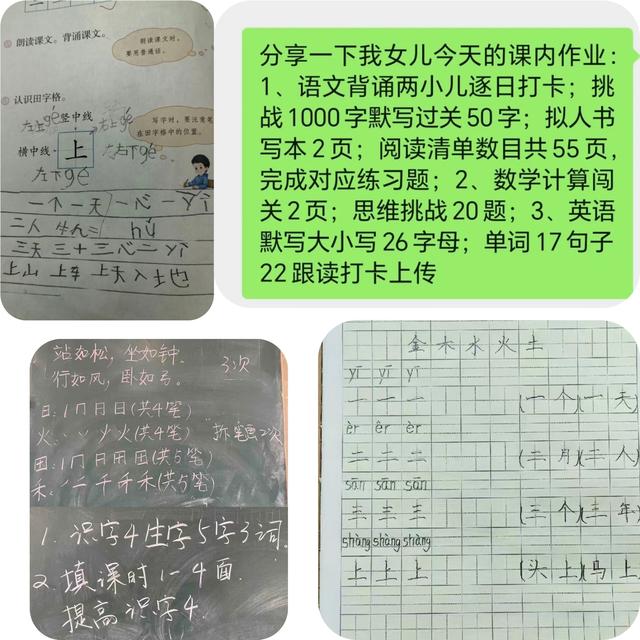 朗读课文。背诵课文。
朗读课文时，
要用普通话。
认识田字格。
写字时，要注意笔
在田字格中的位置。
左上gé 竖中线 右上gé
横中线 上
左下gé 右下gé
一个 一天 一心 一
二人 nǚ
三天 三十三心二
上山 上车 上天入土地
分享一下我女儿今天的课内作业：
1、语文背诵两小儿逐日打卡；挑
战1000字默写过关50字；拟人书
写本2页；阅读清单数目共55页，
完成对应练习题；2、数学计算闯
关2页；思维挑战20题；3、英语
默写大小写26字母；单词17句子
22跟读打卡上传
站如松，坐如钟。
行如风，卧如弓。
3次
日：丨冂日日(共4笔)
火：丶丷少火(共4笔) 拆笔画2次
田：丨冂日用田(共5笔)
禾：一二千禾禾(共5笔)
1. 识字4生字5字3词
2. 填课时1-4面
提高识字4.
金木水火土
yī yī yī
一 一 一 (一个)(一天)
èr èr èr
二 二 二 (二月)(二人)
sān sān sān
三 三 三 (三个)(三年)
shàng shàng shàng
上 上 上 (头上)(马上